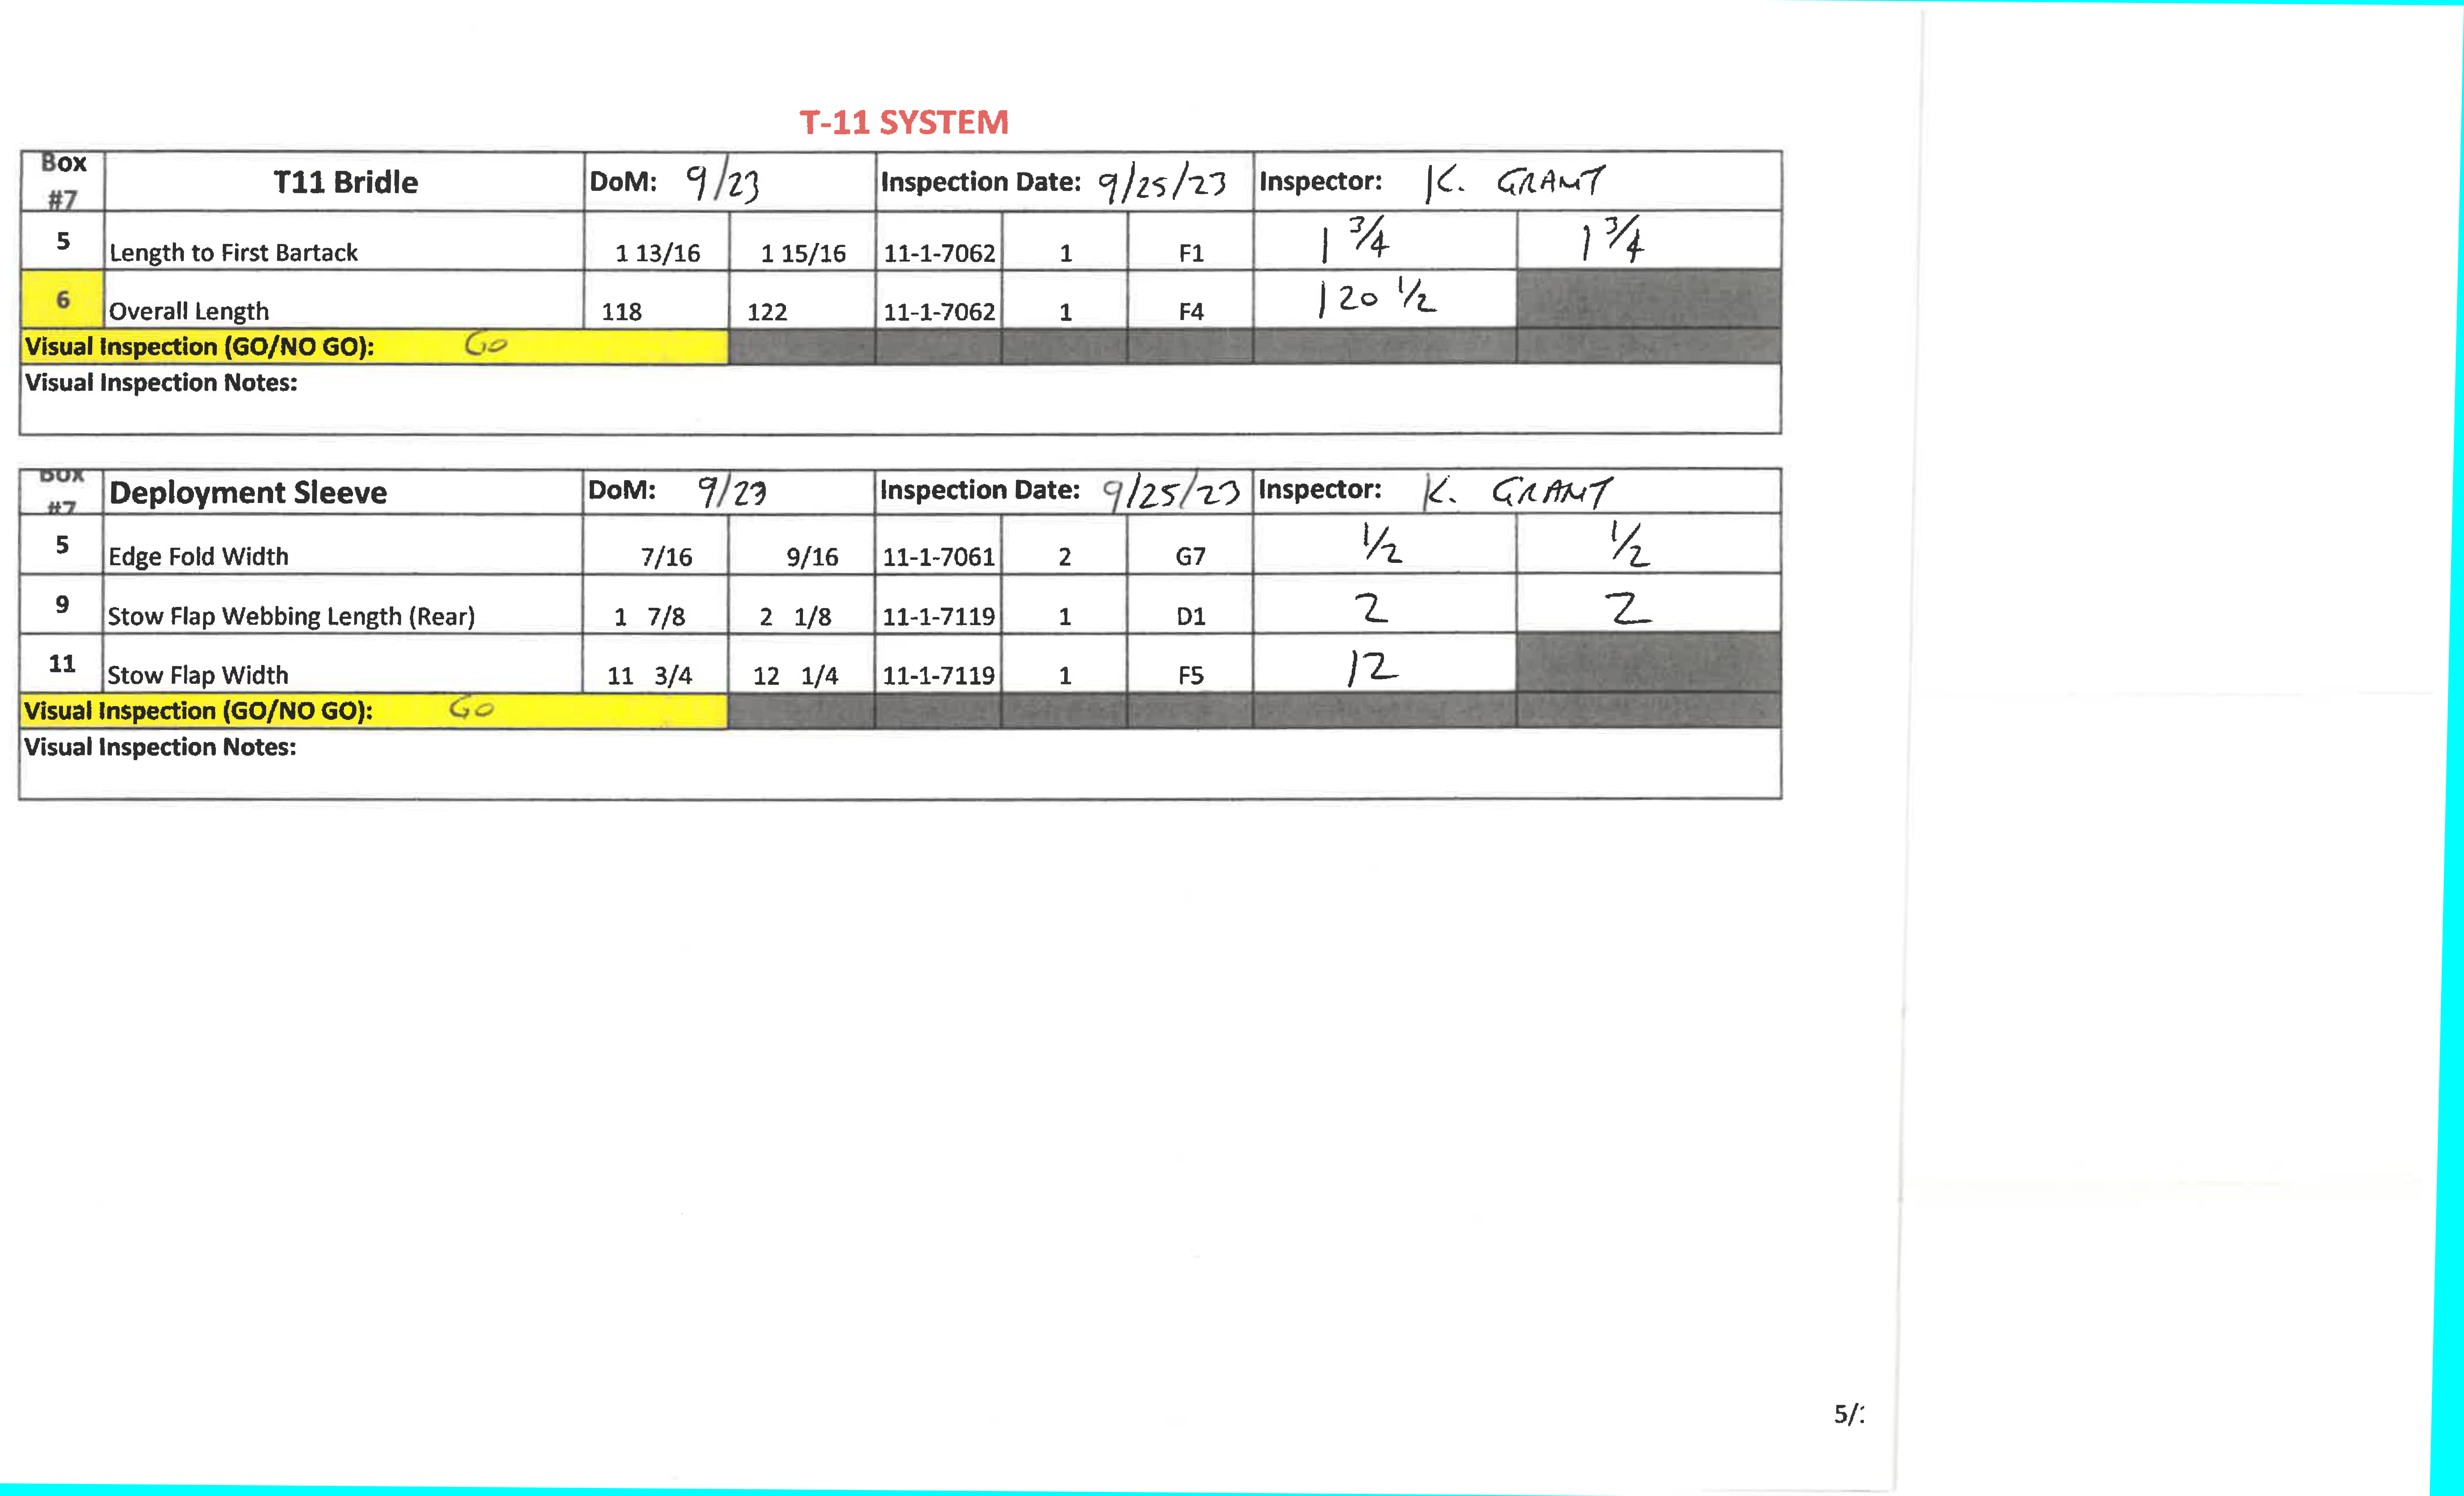 T-11 SYSTEM
Box #7 T11 Bridle DoM: 9/23 Inspection Date: 9/25/23 Inspector: K. GRANT
5 Length to First Bartack 1 13/16 1 15/16 11-1-7062 1 F1 1 3/4 1 3/4
6 Overall Length 118 122 11-1-7062 1 F4 120 1/2
Visual Inspection (GO/NO GO): GO
Visual Inspection Notes:
Box #7 Deployment Sleeve DoM: 9/23 Inspection Date: 9/25/23 Inspector: K. GRANT
5 Edge Fold Width 7/16 9/16 11-1-7061 2 G7 1/2 1/2
9 Stow Flap Webbing Length (Rear) 1 7/8 2 1/8 11-1-7119 1 D1 2 2
11 Stow Flap Width 11 3/4 12 1/4 11-1-7119 1 F5 12
Visual Inspection (GO/NO GO): GO
Visual Inspection Notes:
5/